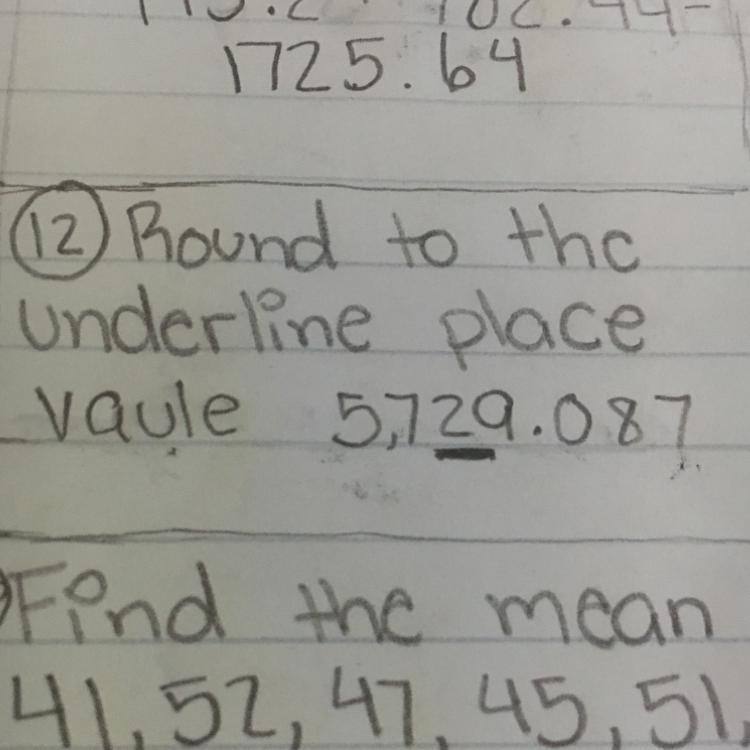 1725.64
12 Round to the
underline place
vaule 5,729.087
Find the mean
41, 52, 47, 45, 51,